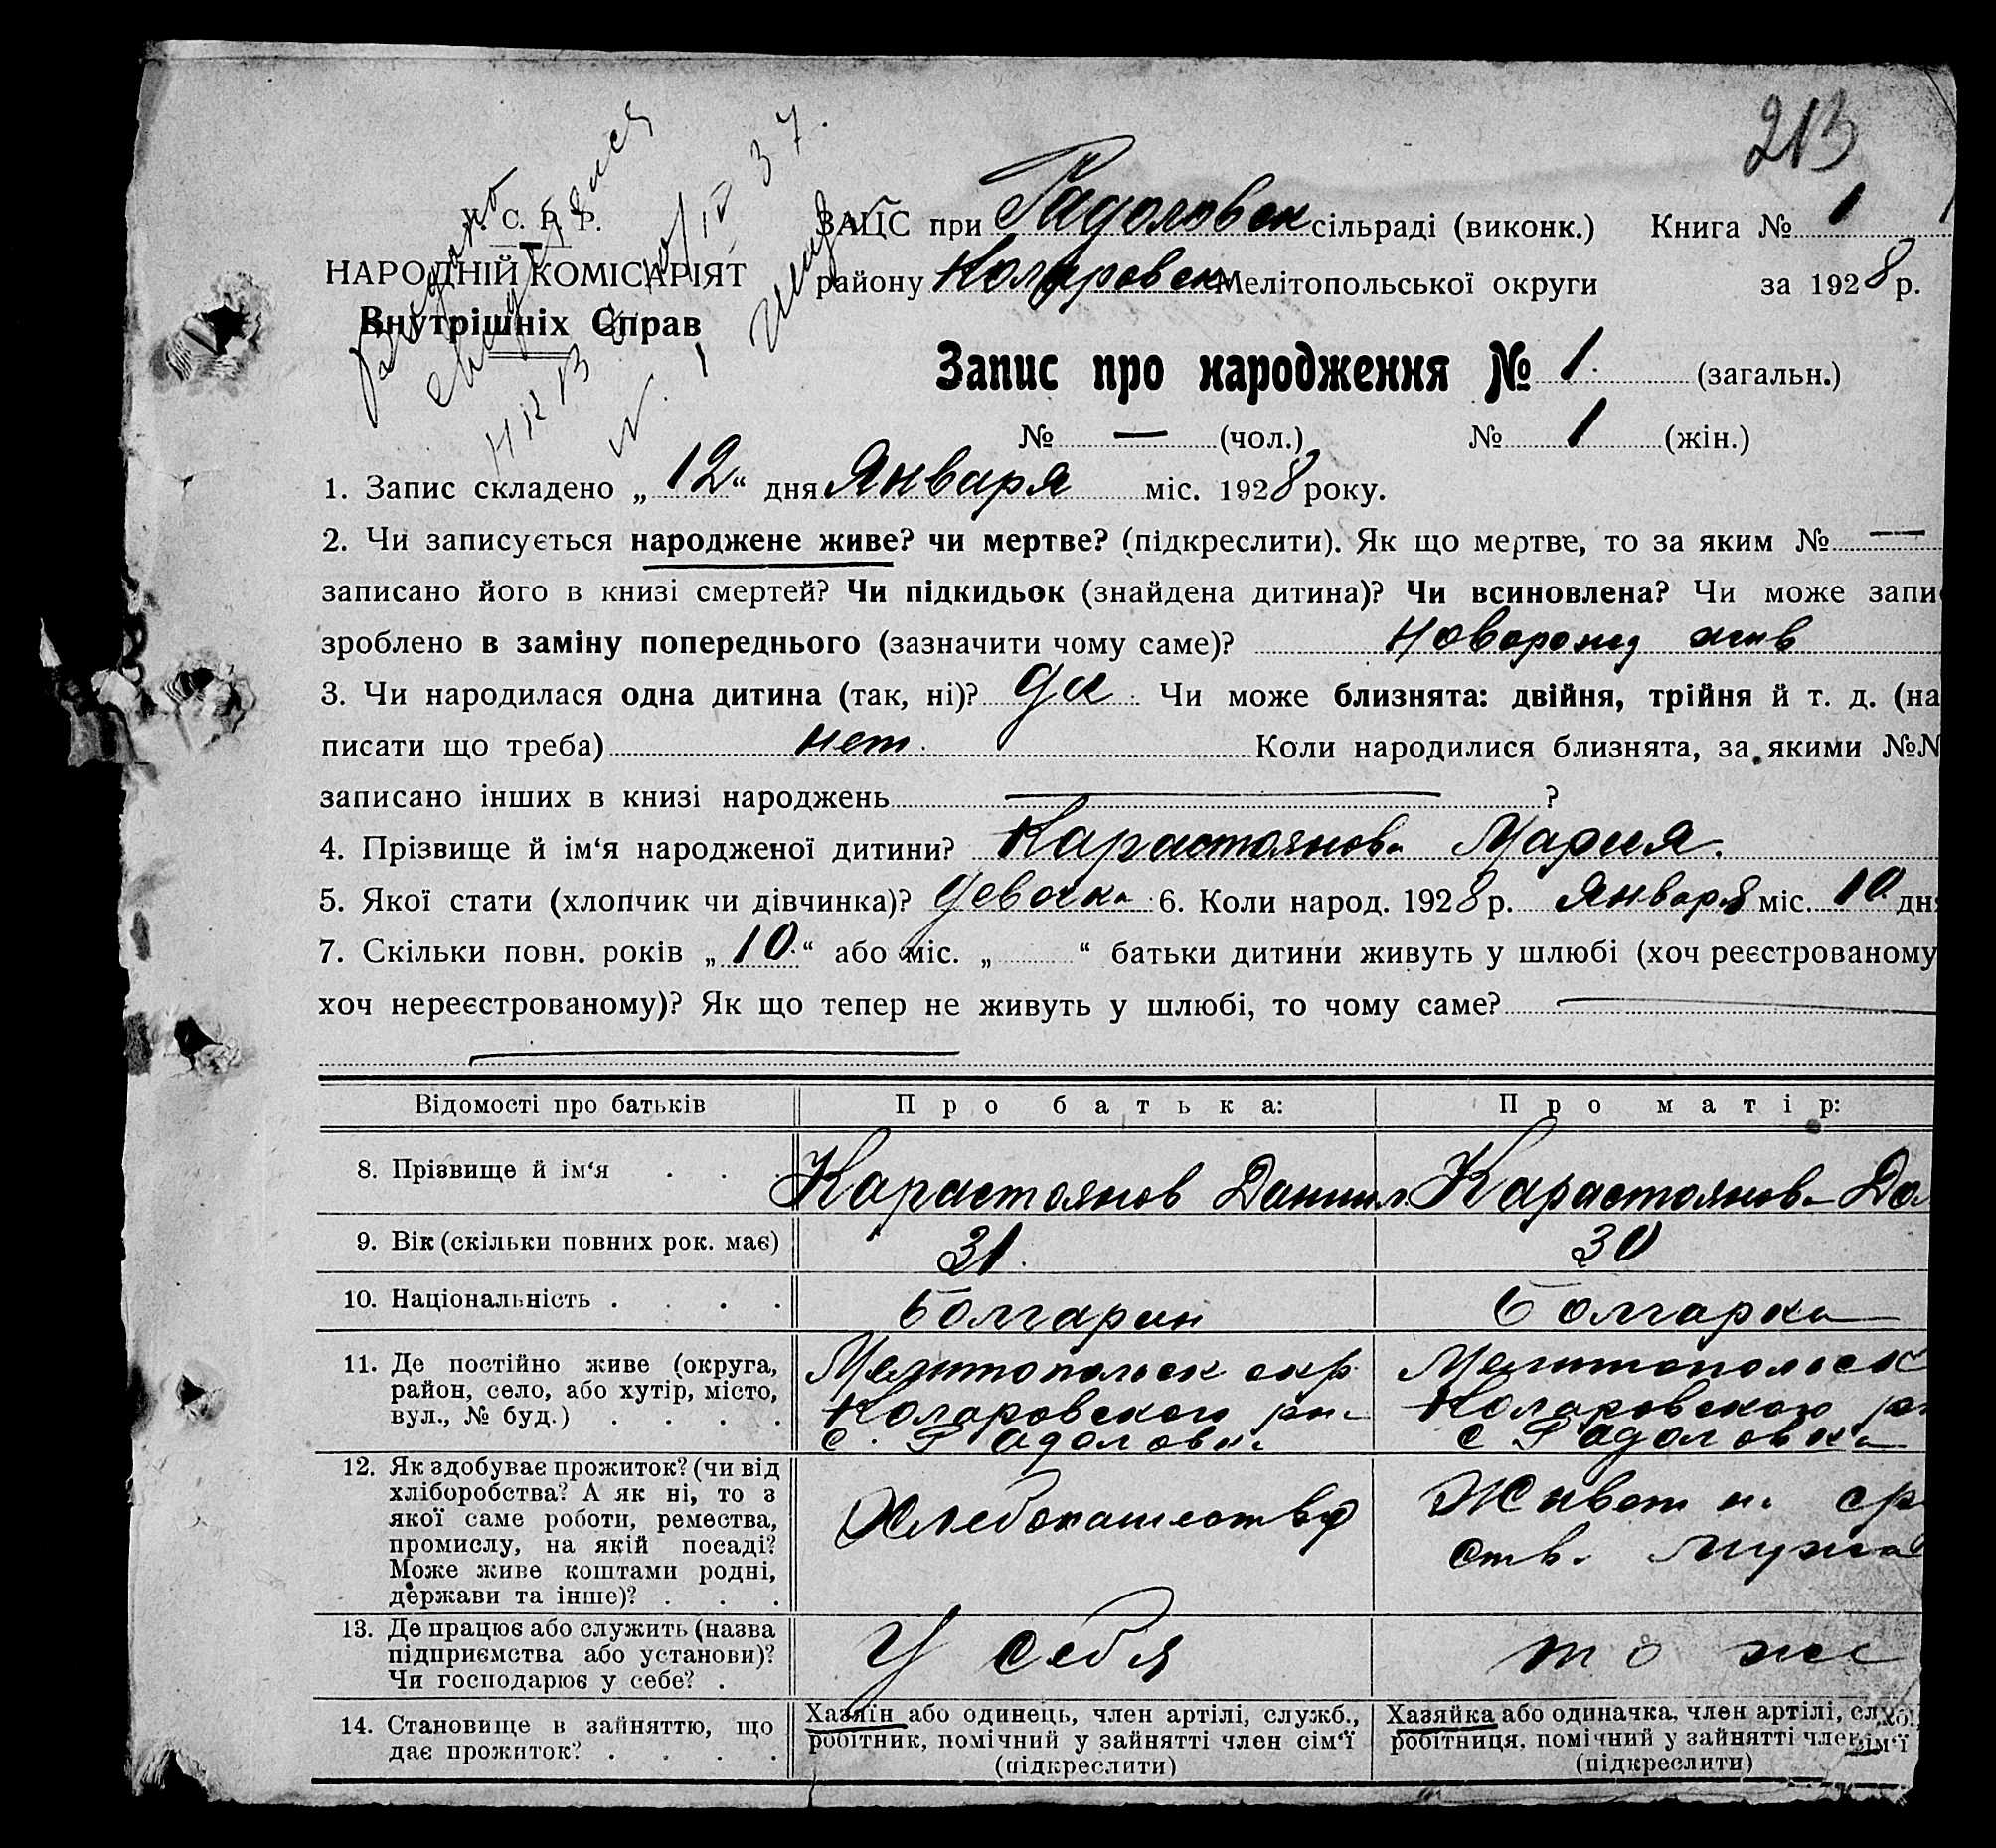 213
У. С. Р. Р.
НАРОДНІЙ КОМІСАРІЯТ
Внутрішніх Справ
ЗАЦС при Радоловск сільраді (виконк.) Книга № 1
району Коларовск Мелітопольської округи за 1928 р.
Запис про народження № 1. (загальн.)
№ — (чол.) № 1 (жін.)
1. Запис складено „12“ дня Января міс. 1928 року.
2. Чи записується народжене живе? чи мертве? (підкреслити). Як що мертве, то за яким № —
записано його в книзі смертей? Чи підкидьок (знайдена дитина)? Чи всиновлена? Чи може запи
зроблено в заміну попереднього (зазначити чому саме)? Буворожд жив
3. Чи народилася одна дитина (так, ні)? да. Чи може близнята: двійня, трійня й т. д. (на
писати що треба) нет. Коли народилися близнята, за якими №№
записано інших в книзі народжень — ?
4. Прізвище й ім‘я народженої дитини? Карастоянова Мария.
5. Якої стати (хлопчик чи дівчинка)? девочка 6. Коли народ. 1928 р. Января міс. 10 дня
7. Скільки повн. років „10.“ або міс. „ “ батьки дитини живуть у шлюбі (хоч реєстрованому
хоч нереєстрованому)? Як що тепер не живуть у шлюбі, то чому саме? —
Відомості про батьків Про батька: Про матір:
8. Прізвище й ім‘я . . . Карастоянов Данил. Карастоянова До
9. Вік (скільки повних рок. має) 31. 30
10. Національність . . . . болгарин болгарка
11. Де постійно живе (округа, Мелитопольск окр. Мелитопольск
район, село, або хутір, місто, Коларовского рн- Коларовского р
вул., № буд.) . . . . с. Радоловка с Радоловка
12. Як здобуває прожиток? (чи від
хліборобства? А як ні, то з Хлебопашество Живет на ср
якої саме роботи, ремества, ств. мужа
промислу, на якій посаді?
Може живе коштами родні,
держави та інше)? . . .
13. Де працює або служить (назва
підприємства або установи)? У себя то же
Чи господарює у себе? .
14. Становище в зайняттю, що Хазяїн або одинець, член артілі, служб., Хазяйка або одиначка, член артілі, служб.,
дає прожиток? . . . . робітник, помічний у зайнятті член сім‘ї робітниця, помічний у зайнятті член сім‘ї
(підкреслити) (підкреслити)